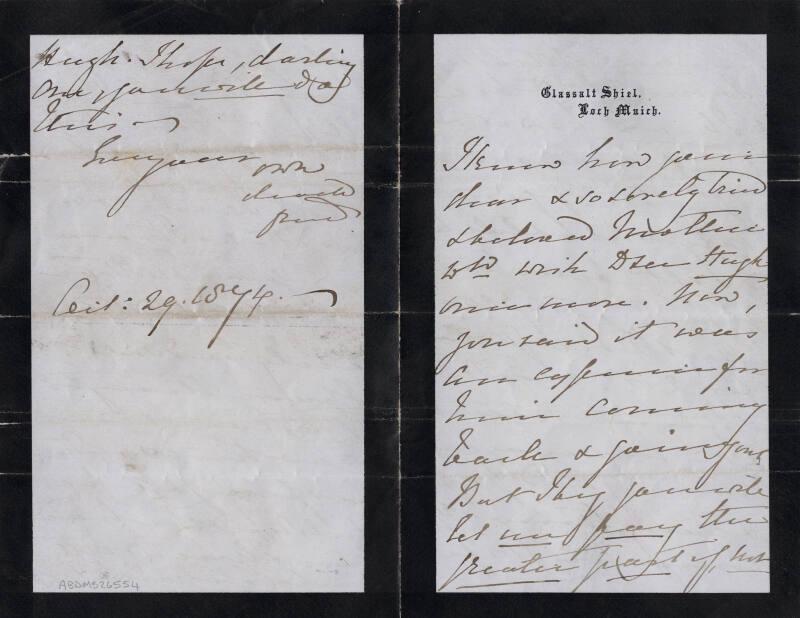 Glassalt Shiel.
Loch Muich.
I know how your
dear & so sorely tried
& beloved Mother
wd wish to see Hugh
once more. Now,
you said it was
an expense for
him coming
back & going
But I beg you will
let me pay the
greater part if not
Hugh. I hope, darling
one, you will do
this —
Ever your
own
devoted
friend
Oct: 29. 1874. —
ABDMS26554